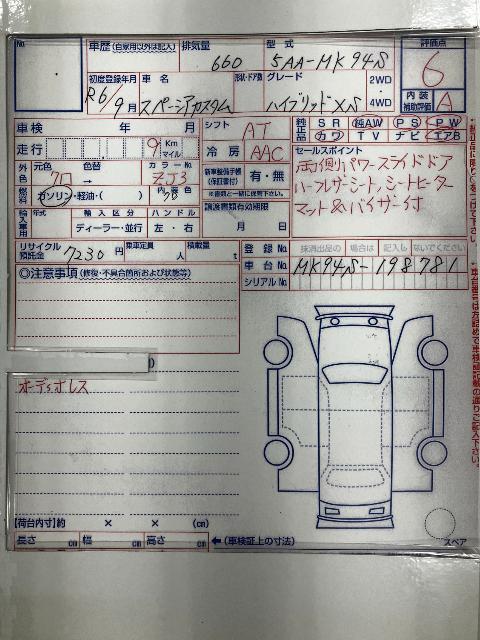 No.
車歴 (自家用以外は記入)
排気量
660
型式
5AA-MK94S
評価点
6
初度登録年月
R6/9月
車名
スペーシアカスタム
形状・ドア数
グレード
ハイブリッドXS
2WD
・
4WD
内装
補助評価
A
車検 年 月
走行 9 Km マイル
シフト
AT
冷房
AAC
純正品
SR 純AW PS PW
カワ TV ナビ エアB
セールスポイント
両側パワースライドドア
ハーフレザーシート、シートヒーター
マット&バイザー付
外色
元色
クロ
色替
→
カラーNo.
ZJ3
燃料
ガソリン・軽油・( )
内装色
新車整備手帳
(保証書付)
有・無
※書類と一緒に保管下さい。
譲渡書類有効期限
月 日
輸入車用
年式
輸入区分
ディーラー・並行
ハンドル
左・右
リサイクル
預託金
7230 円
乗車定員
人
積載量
t
登録No. 抹消出品の場合は記入しないでください
車台No. MK94S-198781
シリアルNo.
◎注意事項 (修復・不具合箇所および状態等)
オーディオレス
【荷台内寸】約 × × (cm)
長さ cm 幅 cm 高さ cm
←(車検証上の寸法)
スペア